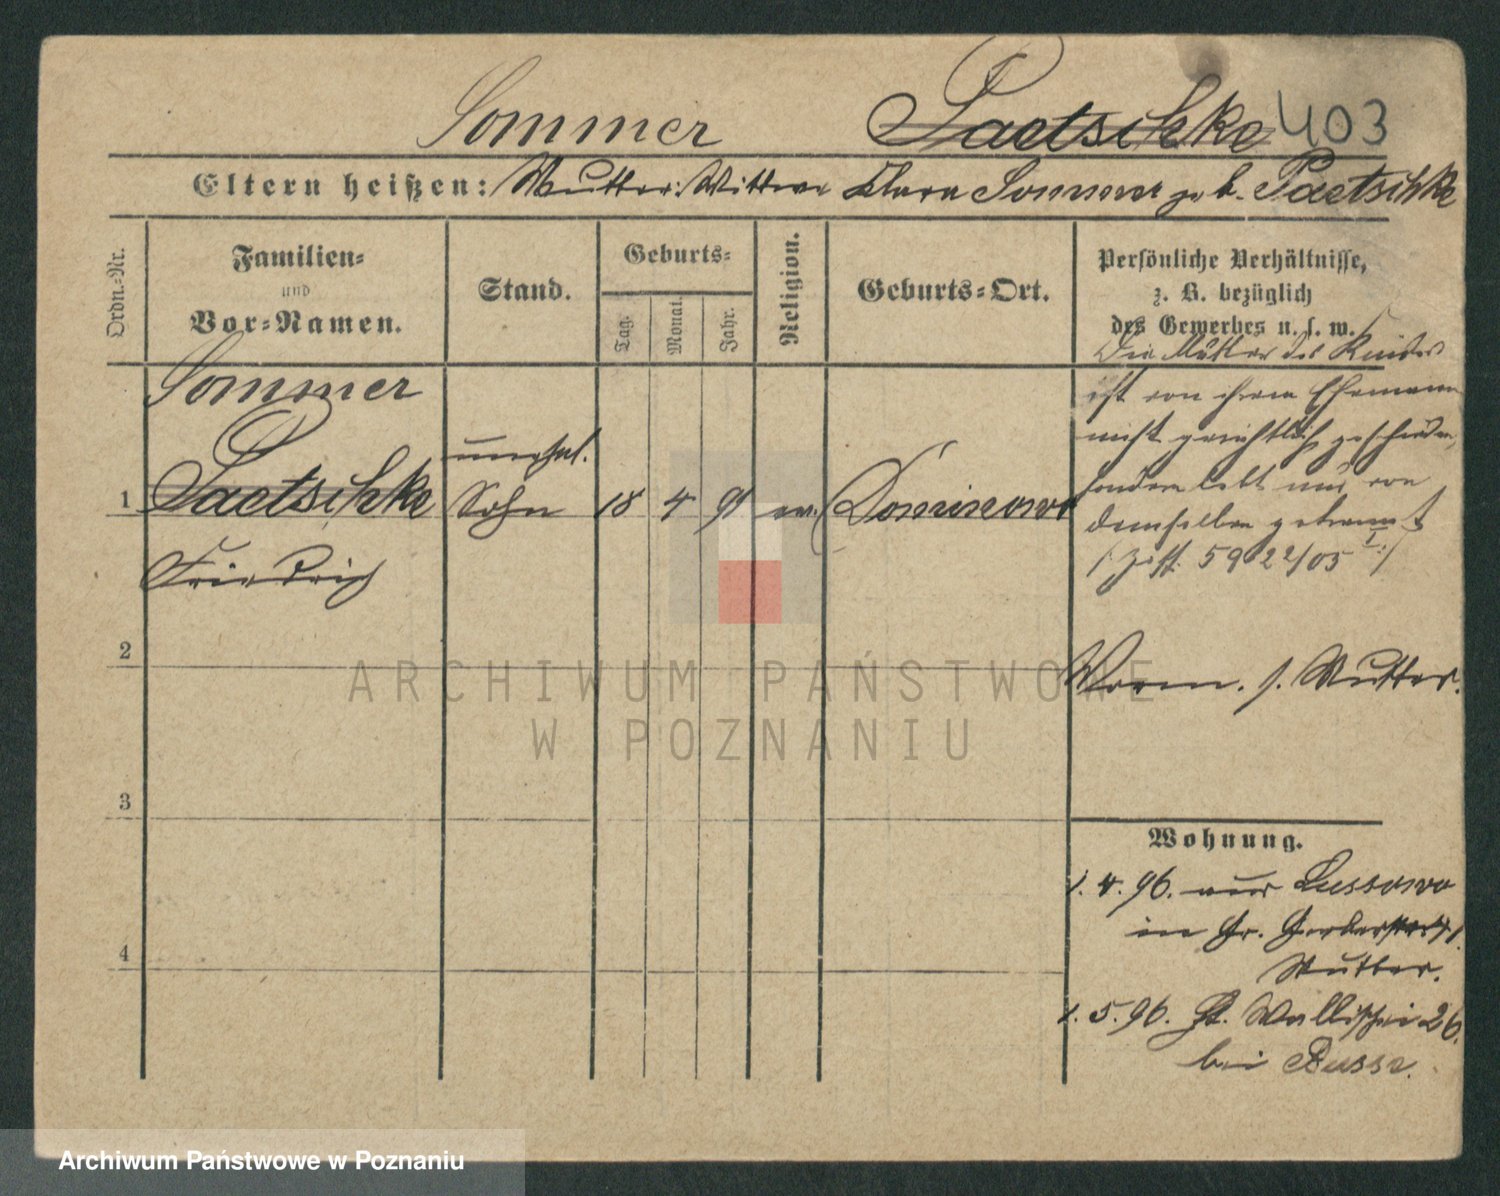 Sommer Paetschke 403
Eltern heißen: Mutter: Wittwe Klara Sommer geb. Paetschke
Ordn.-Nr.
Familien-
und
Vor-Namen.
Stand.
Geburts-
Tag.
Monat.
Jahr.
Religion.
Geburts-Ort.
Persönliche Verhältnisse,
z. B. bezüglich
des Gewerbes u. s. w.
Die Mutter des Kindes
ist von ihrem Ehemann
nicht gerichtlich geschieden,
sondern lebt nur von
demselben getrennt
5922/05
Sommer
unehel.
1 Paetschke Sohn 18 4 91 ev. Dominowo
Friedrich
2
Vorm. s. Mutter.
3
Wohnung.
1. 4. 96. aus Lussowo
in Gr. Gerberstr.
Mutter.
4
1. 5. 96. Wallischei 26.
bei Busse.
ARCHIWUM PAŃSTWOWE
W POZNANIU
Archiwum Państwowe w Poznaniu